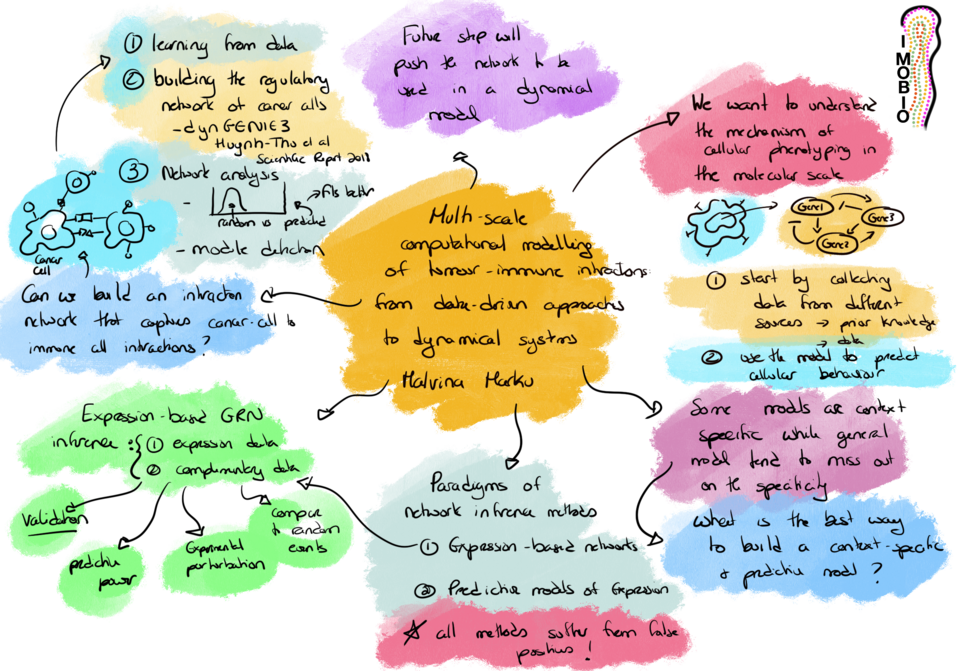 ① learning from data
② building the regulatory
network of cancer cells
- dynGENIE3
Huynh-Thu et al
Scientific Report 2018
③ Network analysis
-
fits better
random vs predicted
- module detection
Cancer
cell
Can we build an interaction
network that captures cancer-cell to
immune cell interactions?
Future step will
push the network to be
used in a dynamical
model
IMOBIO
We want to understand
the mechanism of
cellular phenotyping in
the molecular scale
Gene1
Gene3
Gene2
① start by collecting
data from different
sources → prior knowledge
→ data
② use the model to predict
cellular behaviour
Multi-scale
computational modelling
of tumour-immune interactions:
from data-driven approaches
to dynamical systems
Malvina Marku
Some models are context
specific while general
model tend to miss out
on the specificity
What is the best way
to build a context-specific
& predictive model?
Expression-based GRN
inference: { ① expression data
② complimentary data
Validation
predictive
power
Experimental
perturbation
compare
to random
events
Paradigms of
network inference methods
① Expression-based networks
② Predictive models of Expression
☆ all methods suffer from false
positives!